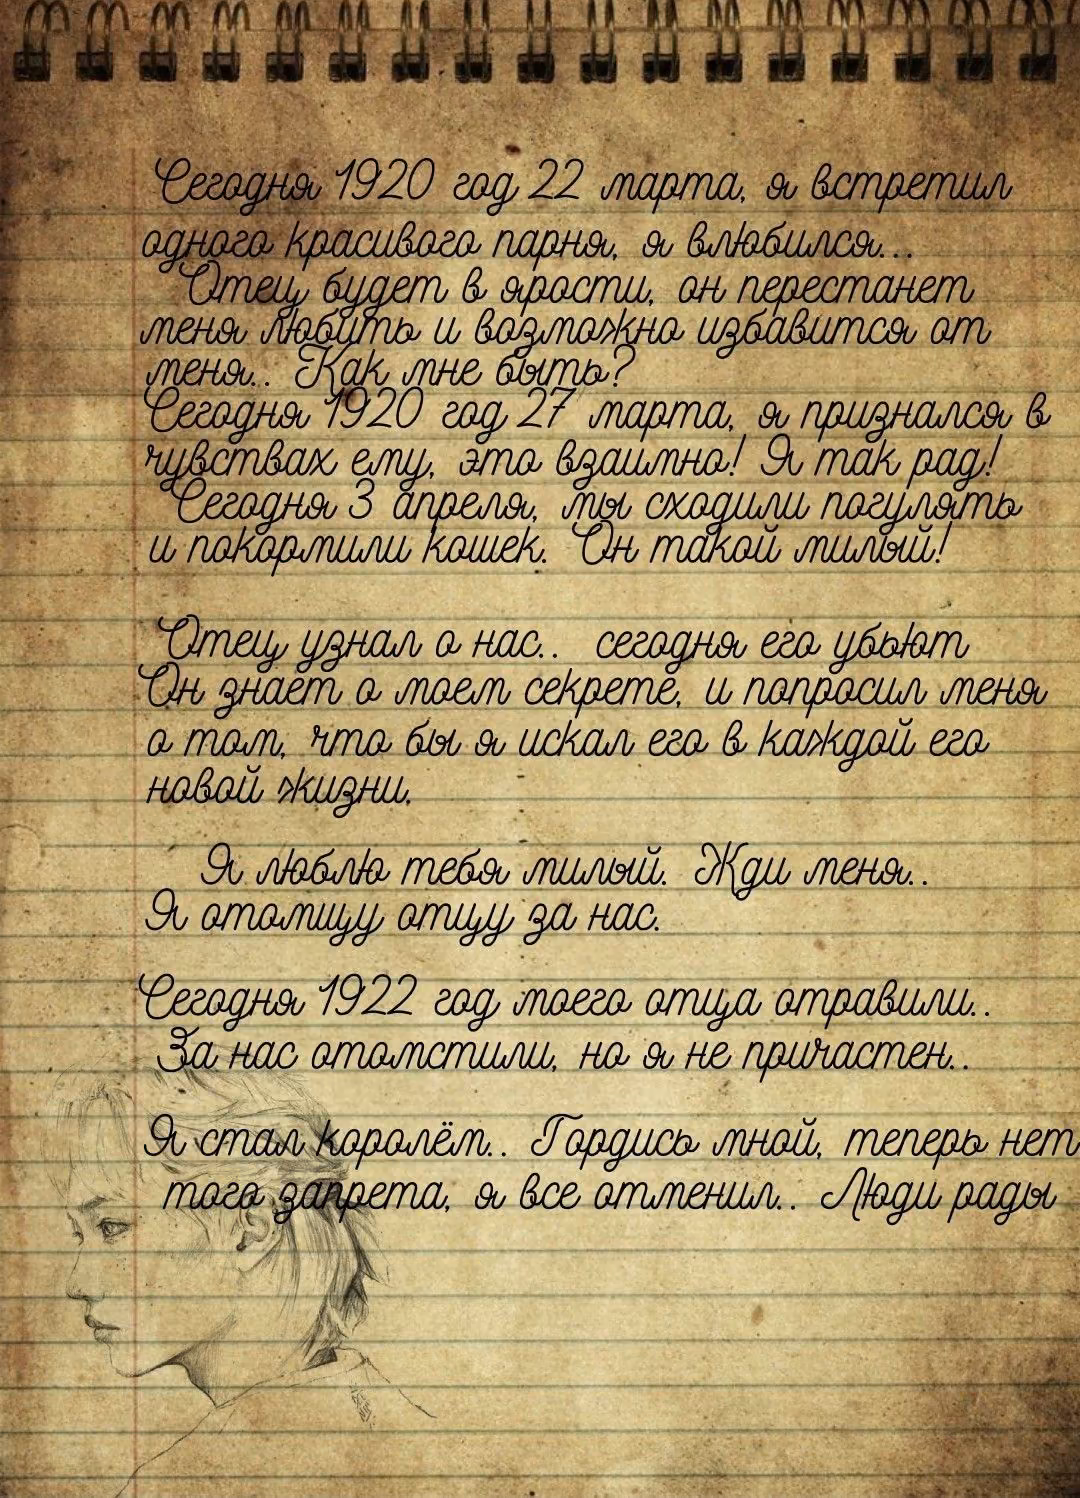 Сегодня 1920 год 22 марта, я встретил
одного красивого парня, я влюбился...
Отец будет в ярости, он перестанет
меня любить и возможно избавится от
меня.. Как мне быть?
Сегодня 1920 год 27 марта, я признался в
чувствах ему, это взаимно! Я так рад!
Сегодня 3 апреля, мы сходили погулять
и покормили кошек. Он такой милый!
Отец узнал о нас.. сегодня его убьют
Он знает о моем секрете, и попросил меня
о том, что бы я искал его в каждой его
новой жизни.
Я люблю тебя милый. Жди меня..
Я отомщу отцу за нас.
Сегодня 1922 год моего отца отравили..
За нас отомстили, но я не причастен..
Я стал королём.. Гордись мной, теперь нет
того запрета, я все отменил.. Люди рады